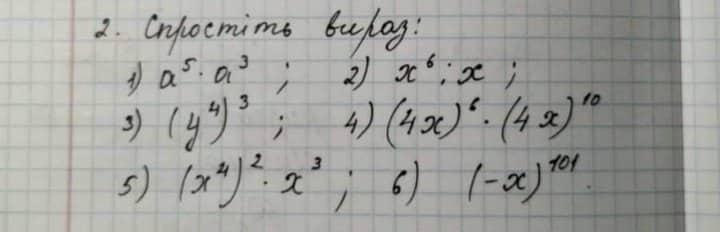 2. Спростіть вираз:
1) a⁵ · a³ ; 2) x⁶ : x ;
3) (y⁴)³ ; 4) (4x)⁶ · (4x)¹⁰
5) (x⁴)² · x³ ; 6) (-x)¹⁰¹.